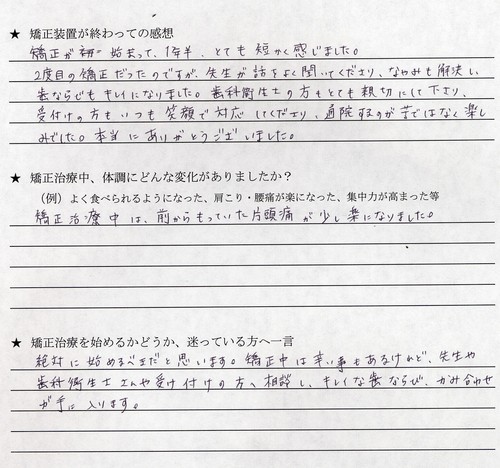 ★ 矯正装置が終わっての感想
矯正が 始まって、1年半、とても 短かく感じました。
2度目の矯正だったのですが、先生が話をよく聞いてくださり、なやみも解決し、
歯ならびもキレイになりました。歯科衛生士の方もとても親切にして下さり、
受付けの方もいつも笑顔で対応してくださり、通院するのが苦ではなく楽し
みでした。本当にありがとうございました。
★ 矯正治療中、体調にどんな変化がありましたか？
（例）よく食べられるようになった、肩こり・腰痛が楽になった、集中力が高まった等
矯正治療中は、前からもっていた片頭痛が少し楽になりました。
★ 矯正治療を始めるかどうか、迷っている方へ一言
絶対に始めるべきだと思います。矯正中は辛い事もあるけれど、先生や
歯科衛生士さんや受け付けの方へ相談し、キレイな歯ならび、かみ合わせ
が手に入ります。